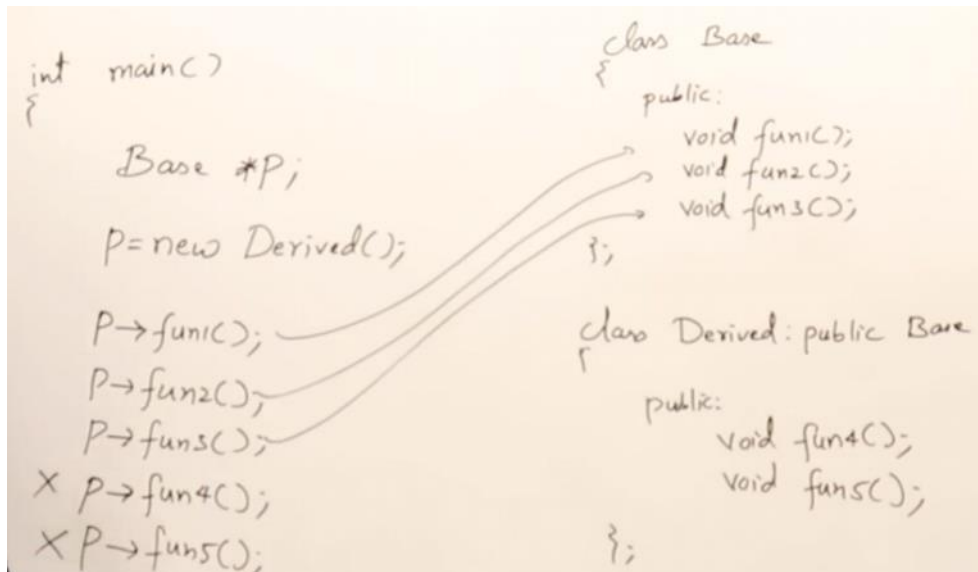 int main()
{
Base *p;
p=new Derived();
p→fun1();
p→fun2();
p→fun3();
X p→fun4();
X p→fun5();
class Base
{
public:
void fun1();
void fun2();
void fun3();
};
class Derived: public Base
{
public:
void fun4();
void fun5();
};